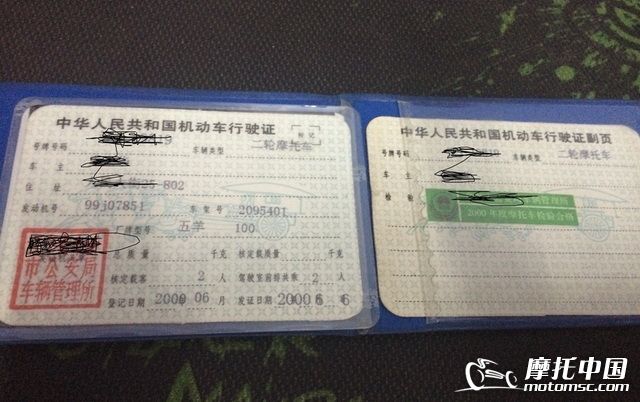 中华人民共和国机动车行驶证
标记
号牌号码 9 车辆类型 二轮摩托车
车主
住址 802
发动机号 99J07851 车架号 2095401
厂牌型号 五羊 100
总质量 千克 核定载质量 千克
核定载客 2 人 驾驶室前排共乘 2 人
登记日期 2000 06 月 发证日期 2000 6 6
市公安局
车辆管理所
中华人民共和国机动车行驶证副页
号牌号码 车辆类型 二轮摩托车
车主
检验
管理所
2000年度摩托车检验合格
摩托中国
motomsc.com